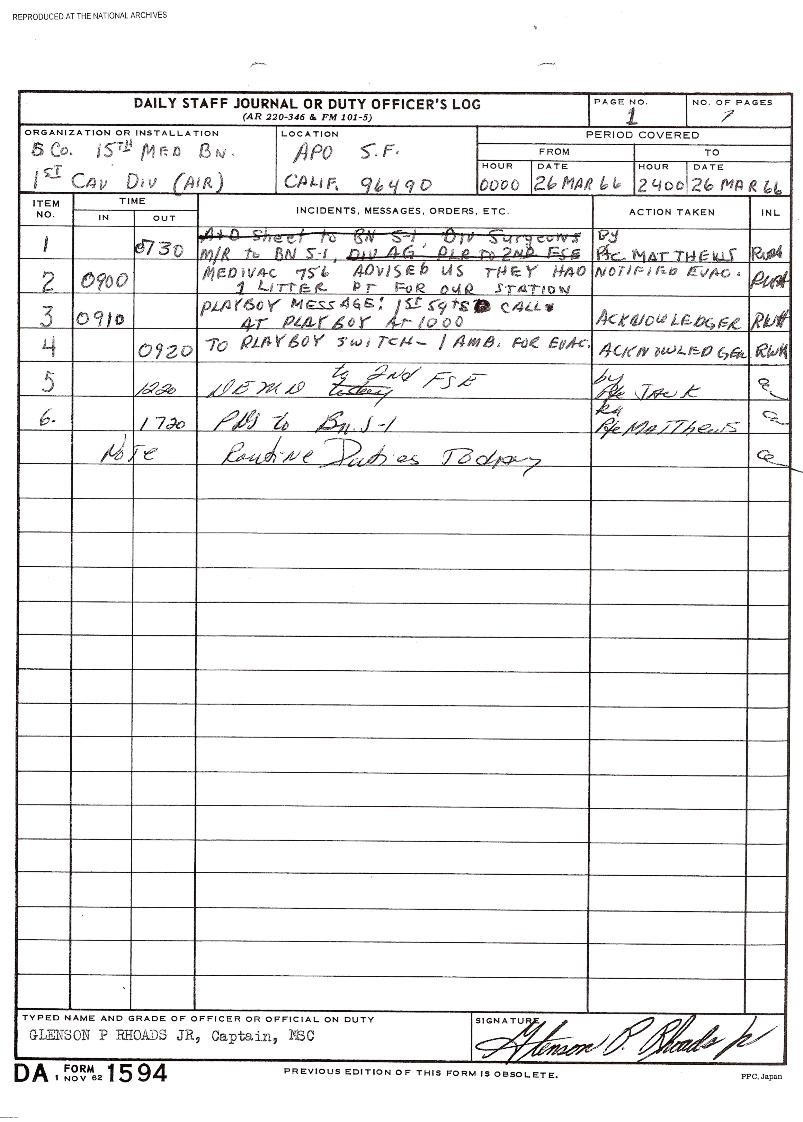 REPRODUCED AT THE NATIONAL ARCHIVES
DAILY STAFF JOURNAL OR DUTY OFFICER'S LOG
(AR 220-346 & FM 101-5)
PAGE NO.
1
NO. OF PAGES
1
ORGANIZATION OR INSTALLATION
B CO. 15TH MED BN.
1ST CAV DIV (AIR)
LOCATION
APO S.F.
CALIF. 96490
PERIOD COVERED
FROM
TO
HOUR
DATE
HOUR
DATE
0000
26 MAR 66
2400
26 MAR 66
ITEM NO.
TIME
IN
OUT
INCIDENTS, MESSAGES, ORDERS, ETC.
ACTION TAKEN
INL
1
0730
A+D Sheet to BN S-1 Div Surgeons
M/R to BN S-1, DIV AG, DLR TO 2ND FSE
By
Pfc MATTHEWS
RWH
2
0900
MEDIVAC 756 ADVISED US THEY HAD
1 LITTER PT FOR OUR STATION
NOTIFIED EVAC.
RWH
3
0910
PLAYBOY MESSAGE: 1ST SGTS CALL
AT PLAYBOY AT 1000
ACKNOWLEDGER
RWH
4
0920
TO PLAYBOY SWITCH - 1 AMB. FOR EVAC.
ACKNOWLEDGER
RWH
5
1220
DEMD to 2nd FSE
by
Pfc JACK
6.
1720
to Bn. S-1
Pfc MATTHEWS
NOTE
Routine Duties Today
TYPED NAME AND GRADE OF OFFICER OR OFFICIAL ON DUTY
GLENSON P RHOADS JR, Captain, MSC
SIGNATURE
Glenson P. Rhoads Jr
DA FORM 1 NOV 62 1594
PREVIOUS EDITION OF THIS FORM IS OBSOLETE.
PPC, Japan